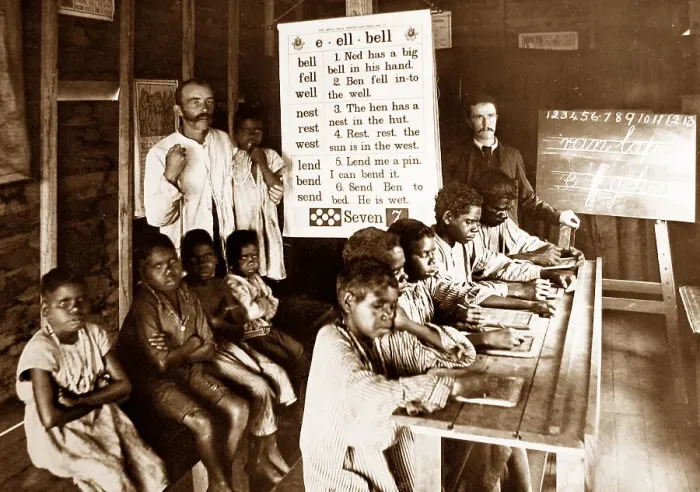 e · ell · bell
bell
fell
well
nest
rest
west
lend
bend
send
1. Ned has a big
bell in his hand.
2. Ben fell in-to
the well.
3. The hen has a
nest in the hut.
4. Rest, rest, the
sun is in the west.
5. Lend me a pin.
I can bend it.
6. Send Ben to
bed. He is wet.
Seven 7
1 2 3 4 5 6 7 8 9 10 11 12 13